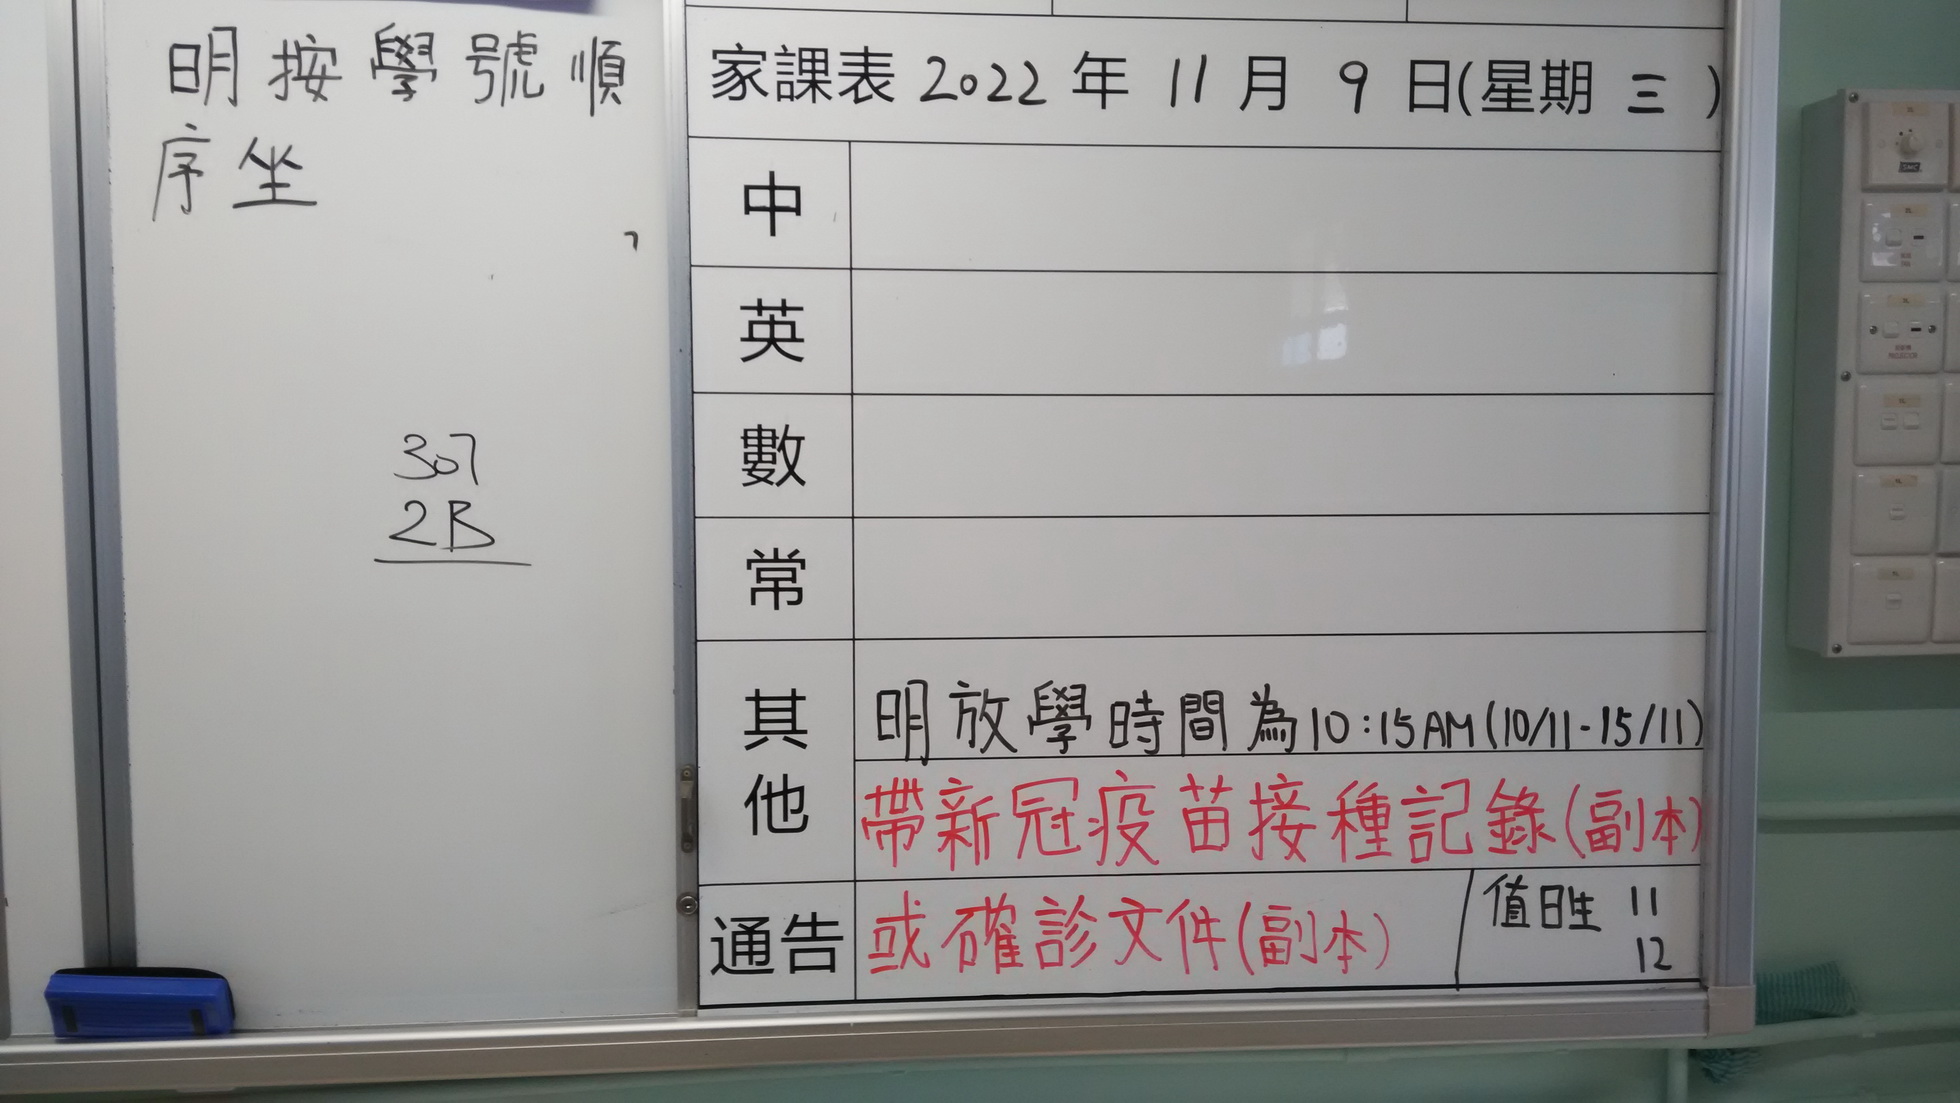 明按學號順
序坐
307
2B
家課表 2022 年 11 月 9 日(星期 三 )
中
英
數
常
其他
明放學時間為10:15AM(10/11-15/11)
帶新冠疫苗接種記錄(副本)
通告
或確診文件(副本)
值日生 11
12